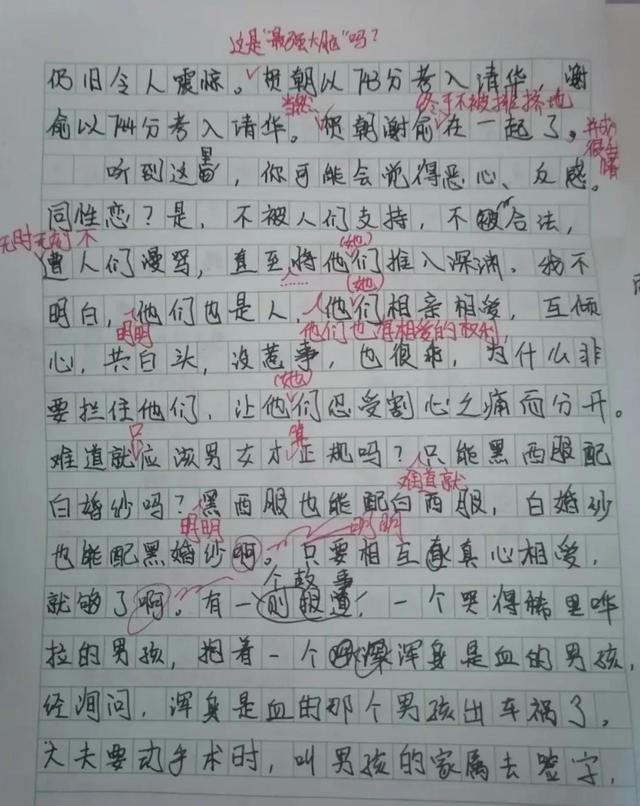 这是"最强大脑"吗?
仍旧令人震惊。贺朝以743分考入清华,谢
当然 终于不被排挤地
俞以744分考入清华。贺朝谢俞在一起了。
听到这里,你可能会觉得恶心、反感。
同性恋?是,不被人们支持,不被合法,
无时无刻不
遭人们谩骂,直至将他们推入深渊。我不
(她)
(她)
明白,他们也是人,他们相亲相爱,互倾
明明 他们也有相爱的权利,
心,共白头,没惹事,也很乖,为什么非
(她)
要拦住他们,让他们忍受割心之痛而分开。
只 算
难道就应该男女才正规吗?只能黑西服配
难道就
白婚纱吗?黑西服也能配白西服,白婚纱
明明 明明
也能配黑婚纱啊。只要相互真心相爱,
个故事
就够了啊。有一则报道,一个哭得稀里哗
拉的男孩,抱着一个浑身是血的男孩,
经询问,浑身是血的那个男孩出车祸了。
大夫要动手术时,叫男孩的家属去签字,